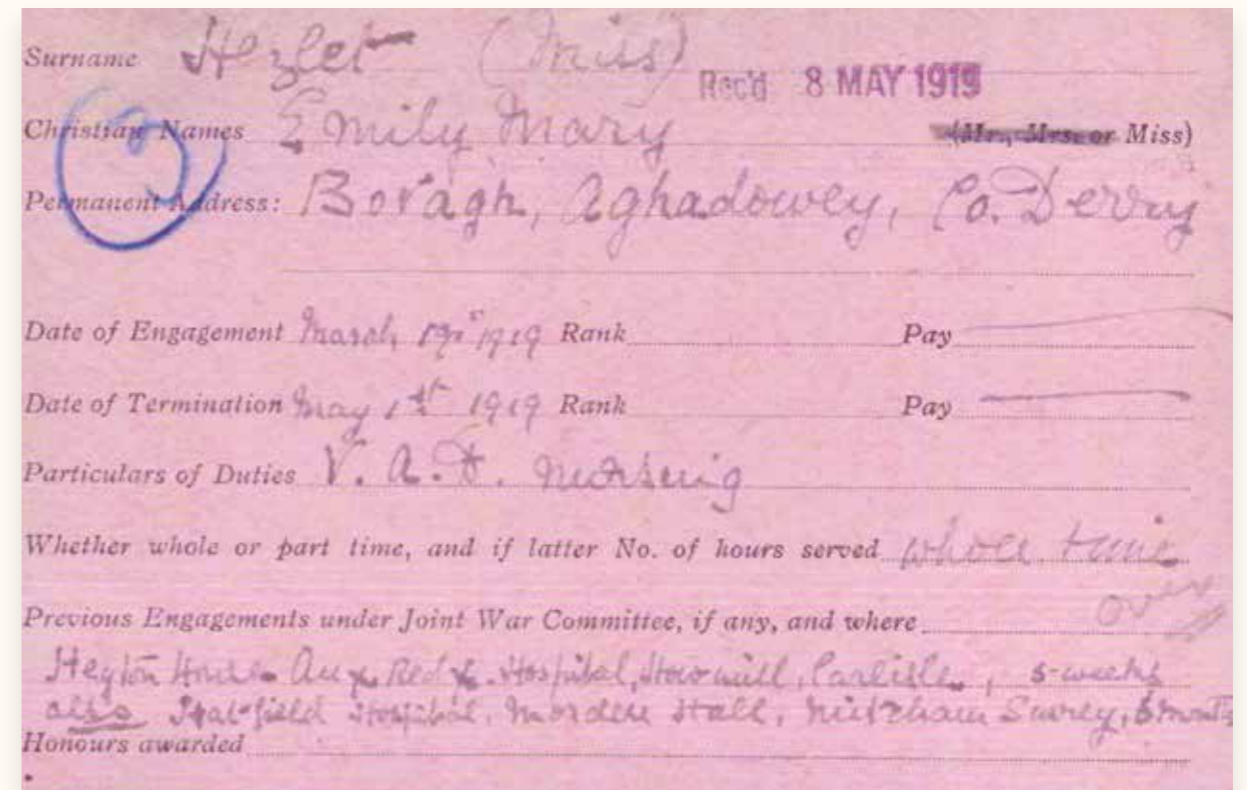 Surname Hezlet (Miss)
Rec'd 8 MAY 1919
Christian Names Emily Mary (Mr., Mrs. or Miss)
Permanent Address: Boragh, Aghadowey, Co. Derry
Date of Engagement March 1919 Rank Pay
Date of Termination May 1st 1919 Rank Pay
Particulars of Duties V. A. D. Nursing
Whether whole or part time, and if latter No. of hours served whole time
Previous Engagements under Joint War Committee, if any, and where over
House Aux Red X. Hospital, How mill, Carlisle, 5 weeks
also Hospital, Morden Hall, Mitcham Surrey, 6 months
Honours awarded